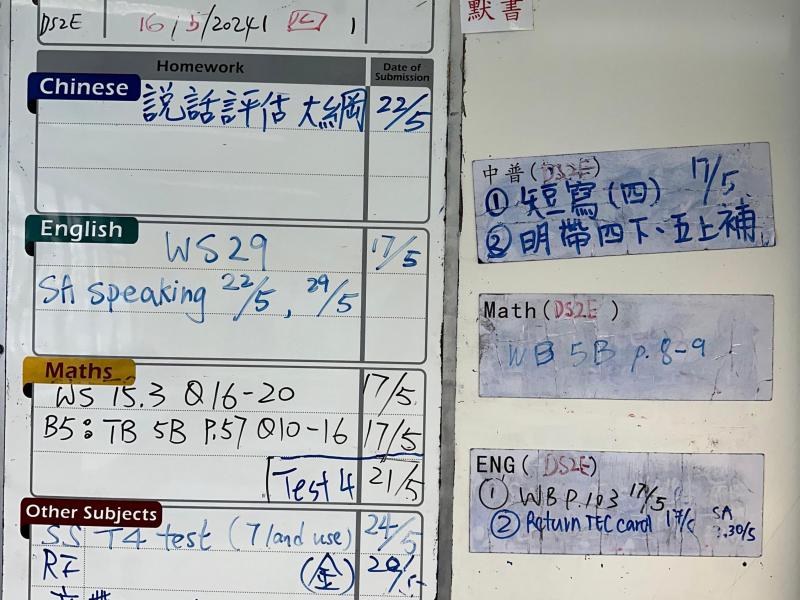 DS2E 16/5/2024 1
Homework Date of Submission
Chinese 説話評估 大綱 22/5
English WS29 17/5
SA speaking 22/5, 29/5
Maths
WS 15.3 Q16-20 17/5
B5: TB 5B P.57 Q10-16 17/5
Test 4 21/5
Other Subjects
SS T4 test (7 land use) 24/5
RF (金)
默書
中普(DS2E) 17/5
① 短寫(四)
② 明帶四下、五上補
Math(DS2E)
WB 5B p.8-9
ENG(DS2E)
① WB P.103 17/5
② Return TEC card 17/5 SA
30/5